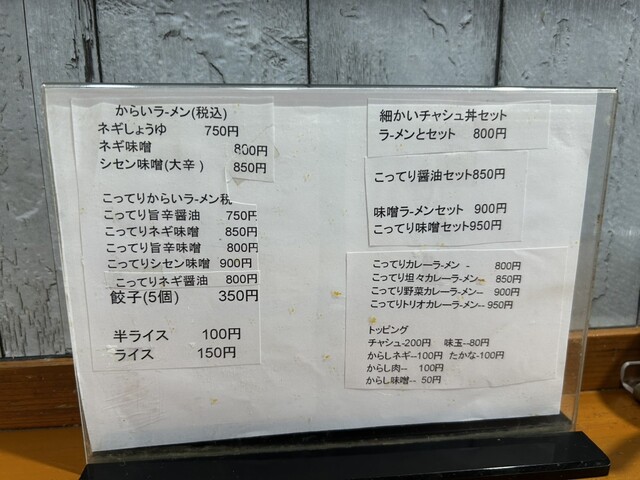 からいラーメン(税込)
ネギしょうゆ 750円
ネギ味噌 800円
シセン味噌(大辛) 850円
こってりからいラーメン税
こってり旨辛醤油 750円
こってりネギ味噌 850円
こってり旨辛味噌 800円
こってりシセン味噌 900円
こってりネギ醤油 800円
餃子(5個) 350円
半ライス 100円
ライス 150円
細かいチャシュ丼セット
ラーメンとセット 800円
こってり醤油セット850円
味噌ラーメンセット 900円
こってり味噌セット950円
こってりカレーラーメン - 800円
こってり坦々カレーラーメン-- 850円
こってり野菜カレーラーメン-- 900円
こってりトリオカレーラーメン--950円
トッピング
チャシュ-200円 味玉--80円
からしネギ--100円 たかな-100円
からし肉-- 100円
からし味噌-- 50円